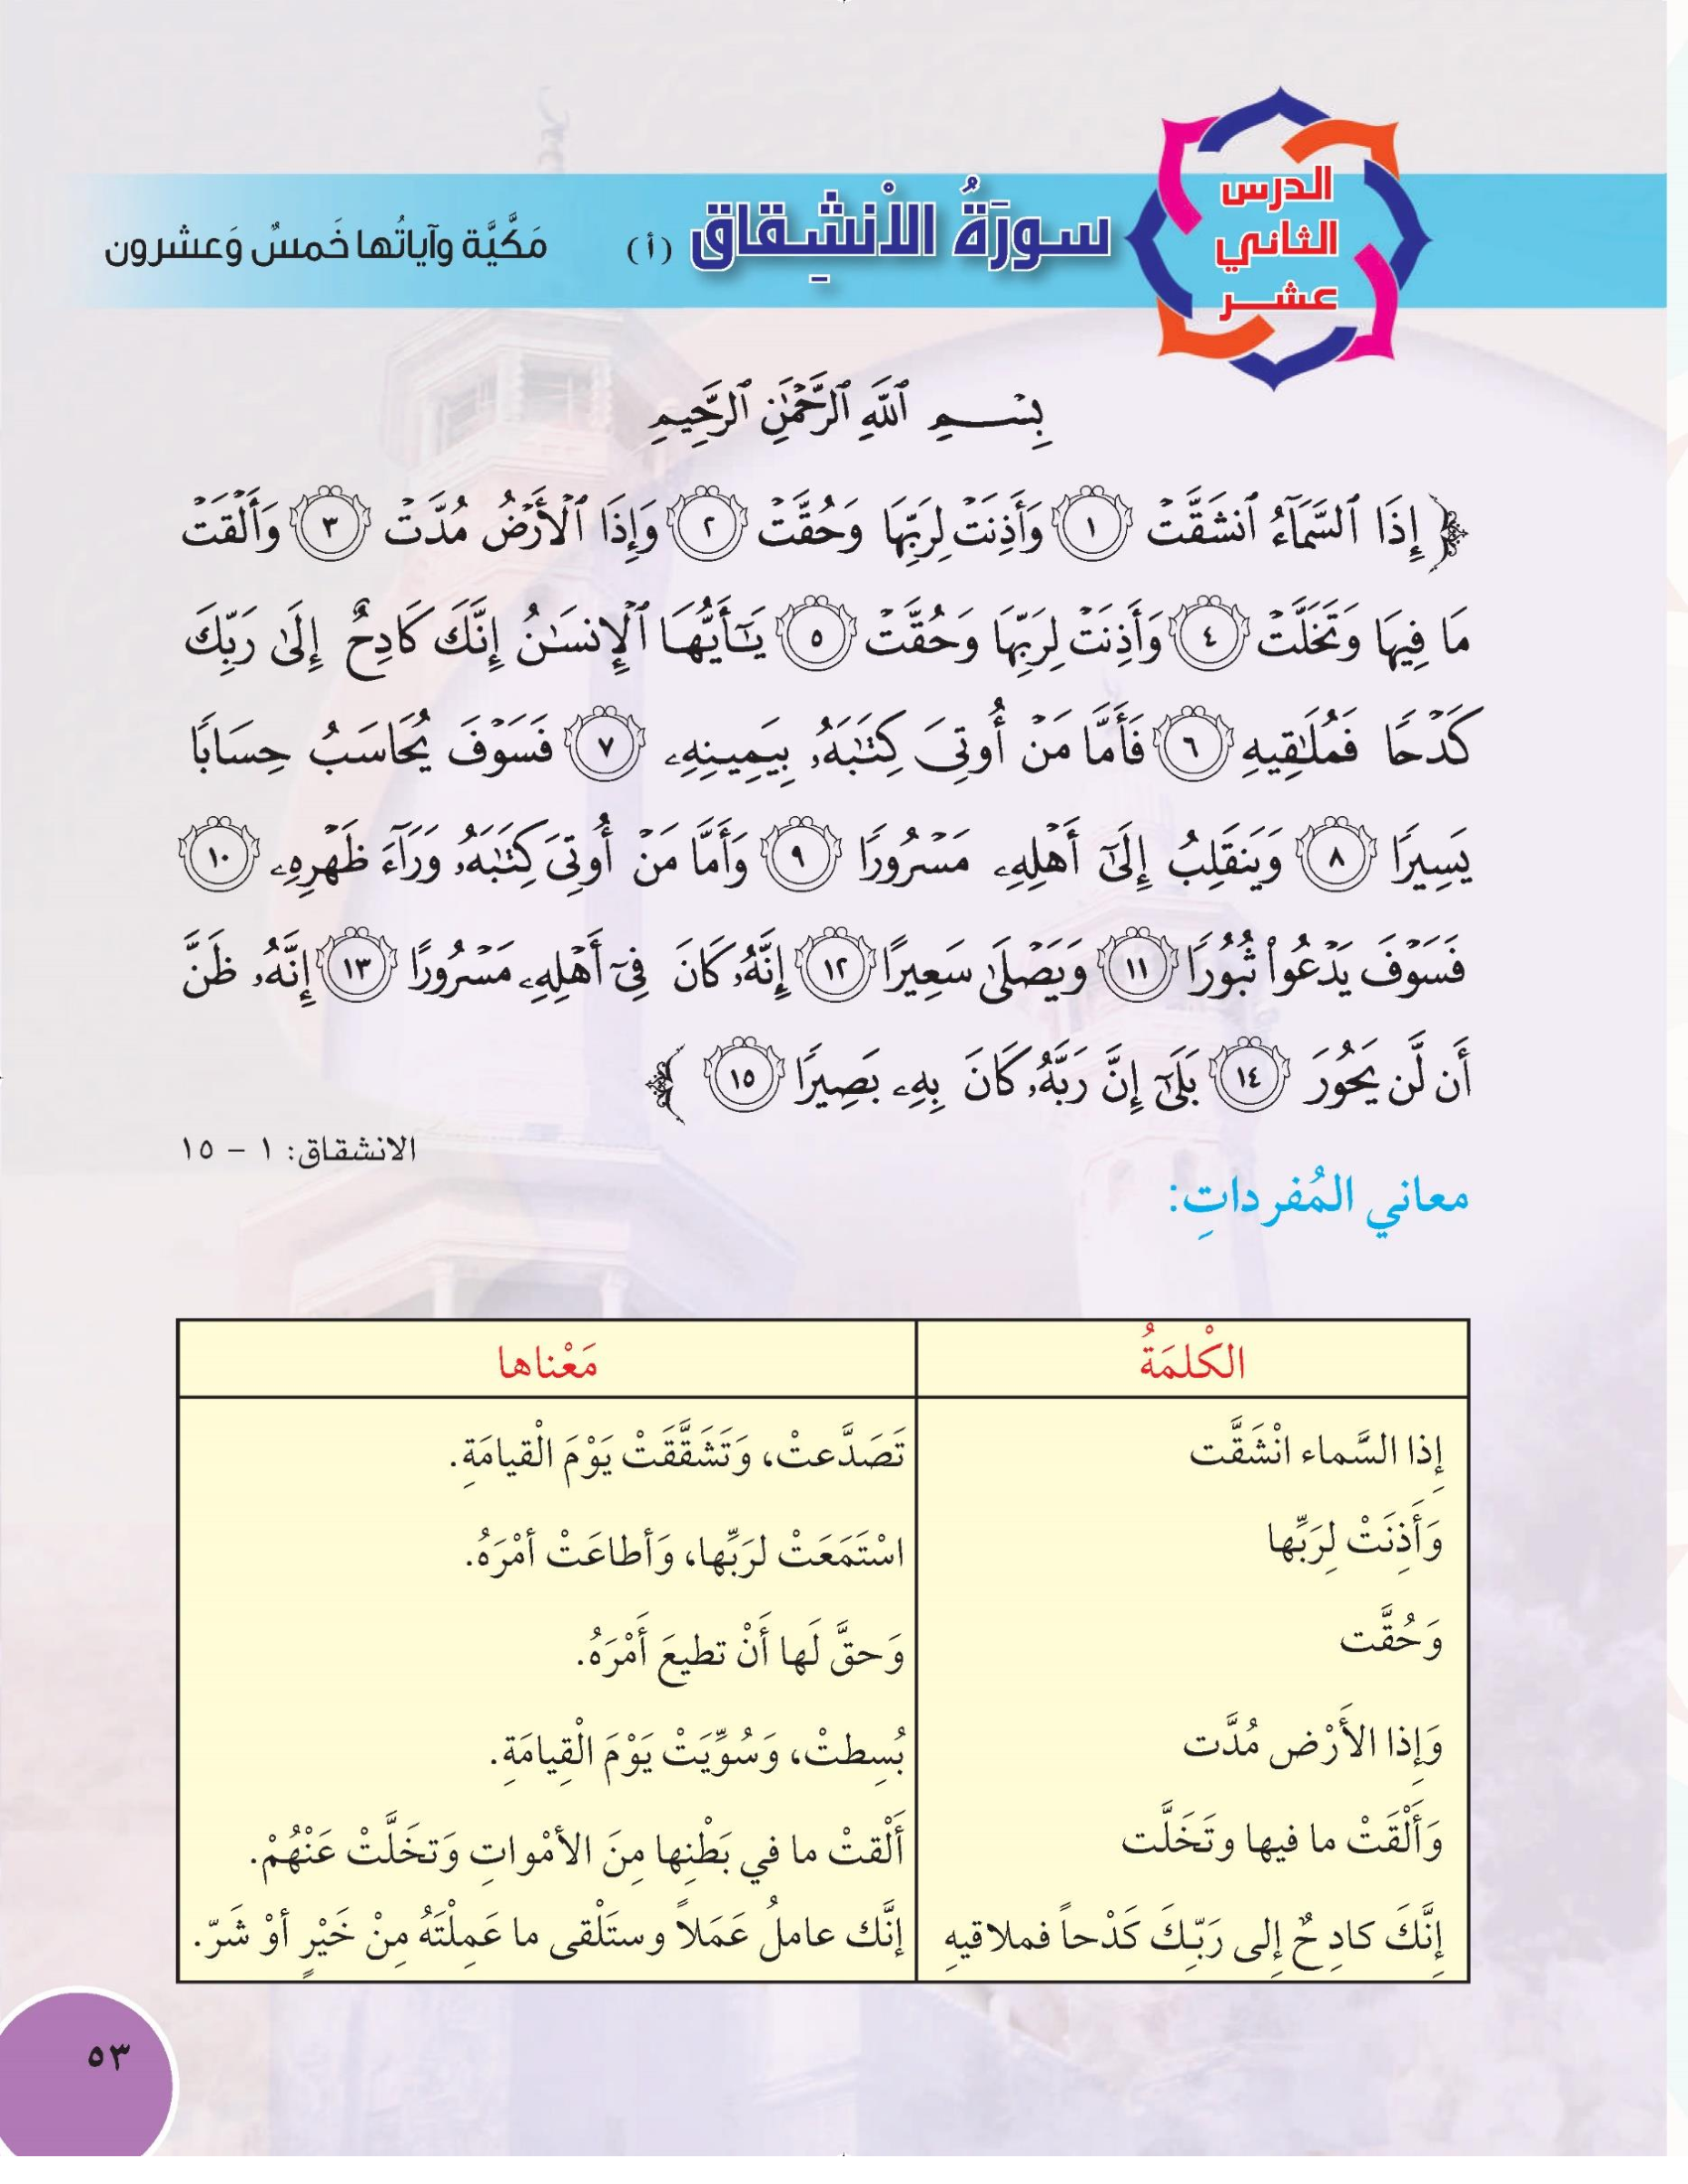 الدرس
الثاني
عشر
سورَةُ الانْشِقاق (أ) مَكيَّة وآياتُها خَمسٌ وَعشرون
بِسْمِ ٱللَّهِ ٱلرَّحْمَٰنِ ٱلرَّحِيمِ
﴿ إِذَا ٱلسَّمَآءُ ٱنشَقَّتْ ١ وَأَذِنَتْ لِرَبِّهَا وَحُقَّتْ ٢ وَإِذَا ٱلْأَرْضُ مُدَّتْ ٣ وَأَلْقَتْ
مَا فِيهَا وَتَخَلَّتْ ٤ وَأَذِنَتْ لِرَبِّهَا وَحُقَّتْ ٥ يَـٰٓأَيُّهَا ٱلْإِنسَـٰنُ إِنَّكَ كَادِحٌ إِلَىٰ رَبِّكَ
كَدْحًا فَمُلَـٰقِيهِ ٦ فَأَمَّا مَنْ أُوتِىَ كِتَـٰبَهُۥ بِيَمِينِهِۦ ٧ فَسَوْفَ يُحَاسَبُ حِسَابًا
يَسِيرًا ٨ وَيَنقَلِبُ إِلَىٰٓ أَهْلِهِۦ مَسْرُورًا ٩ وَأَمَّا مَنْ أُوتِىَ كِتَـٰبَهُۥ وَرَآءَ ظَهْرِهِۦ ١٠
فَسَوْفَ يَدْعُوا۟ ثُبُورًا ١١ وَيَصْلَىٰ سَعِيرًا ١٢ إِنَّهُۥ كَانَ فِىٓ أَهْلِهِۦ مَسْرُورًا ١٣ إِنَّهُۥ ظَنَّ
أَن لَّن يَحُورَ ١٤ بَلَىٰٓ إِنَّ رَبَّهُۥ كَانَ بِهِۦ بَصِيرًا ١٥ ﴾
الانشقاق: ١ – ١٥
معاني المُفرداتِ:
الكْلمَةُ مَعْناها
إِذا السَّماء انْشَقَّت تَصَدَّعتْ، وَتَشَقَّقَتْ يَوْمَ الْقيامَةِ.
وَأَذِنَتْ لِرَبِّها اسْتَمَعَتْ لرَبِّها، وَأطاعَتْ أمْرَهُ.
وَحُقَّت وَحقَّ لَها أَنْ تطيعَ أَمْرَهُ.
وَإِذا الأَرْض مُدَّت بُسِطتْ، وَسُوِّيَتْ يَوْمَ الْقِيامَةِ.
وَأَلْقَتْ ما فيها وتَخَلَّت أَلْقتْ ما في بَطْنِها مِنَ الأمْواتِ وَتخَلَّتْ عَنْهُمْ.
إِنَّكَ كادِحٌ إِلى رَبِّكَ كَدْحاً فملاقيهِ إنَّك عاملُ عَمَلاً وستَلْقى ما عَمِلْتَهُ مِنْ خَيْرٍ أوْ شَرّ.
٥٣